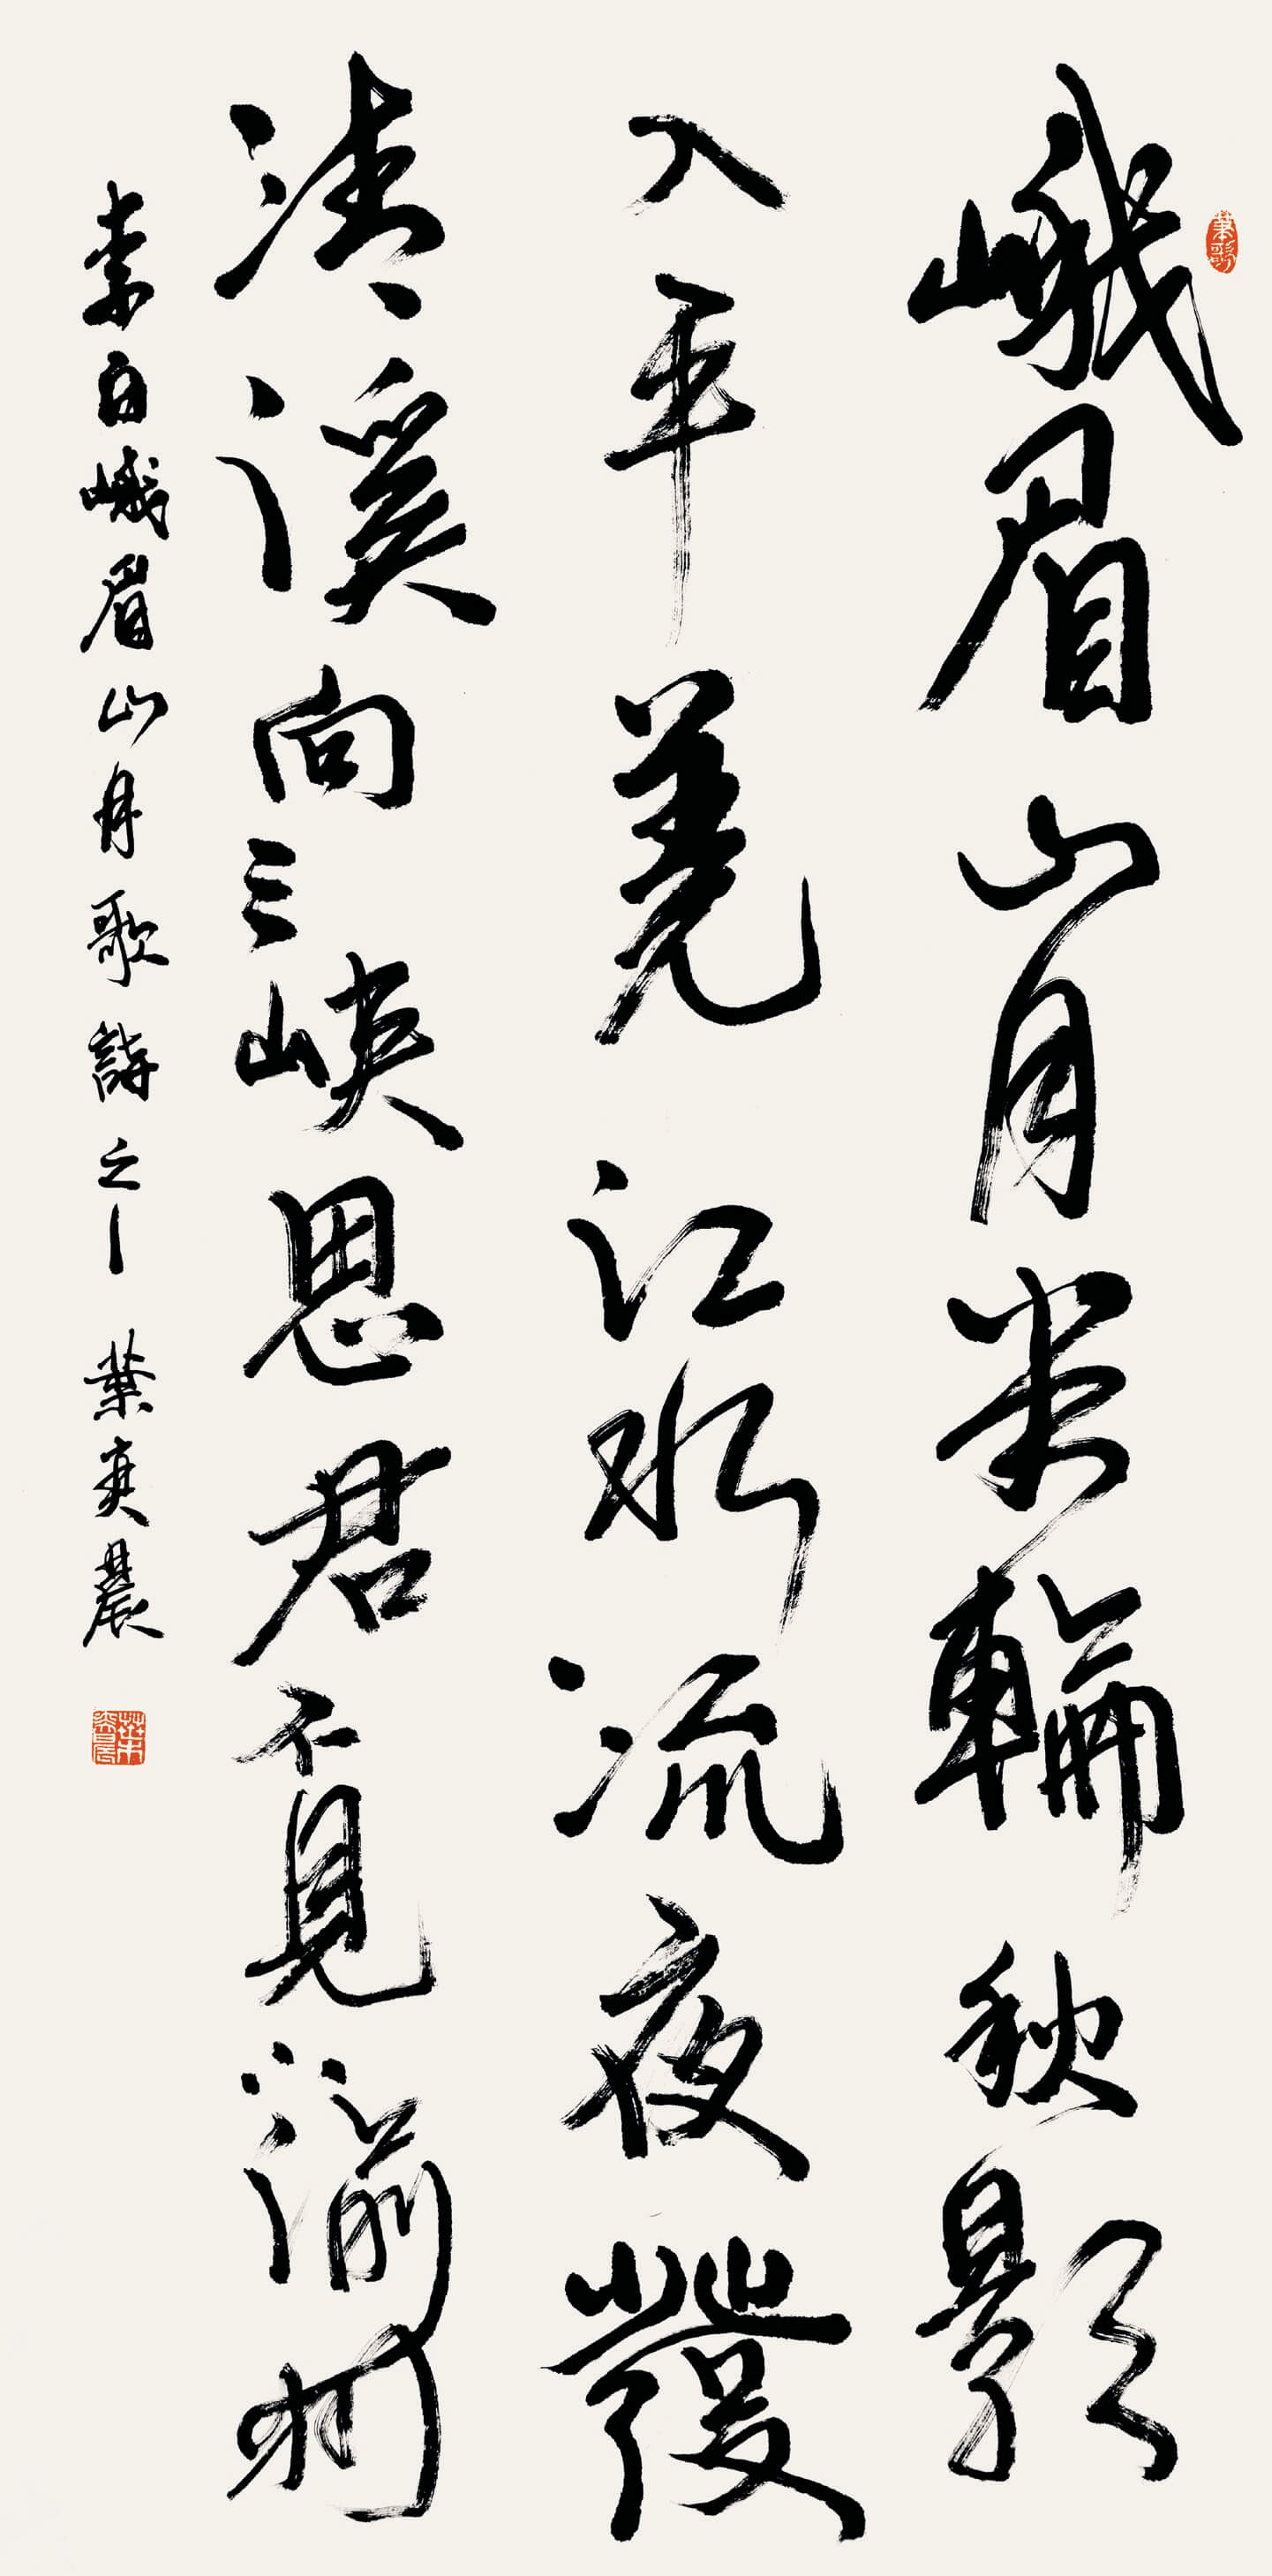 峨眉山月半輪秋影
入平羌江水流夜發
清溪向三峽思君不見下渝州
李白峨眉山月歌詩之一 葉奕晨